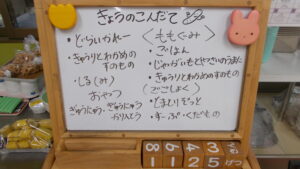 きょうのこんだて
・どらいかれー
・きゅうりとわかめの
すのもの
・しる(み)
おやつ
ぎゅうにゅう・ぎゅうにゅう
おりんとう
〈ももぐみ〉
・ごはん
・じゃがいもとやさいのうまに
・きゅうりとわかめのすのもの
〈ごごしょく〉
・とまとりぞっと
・すーぷ・くだもの
8 4 2 3
1 1 2 5 がつ